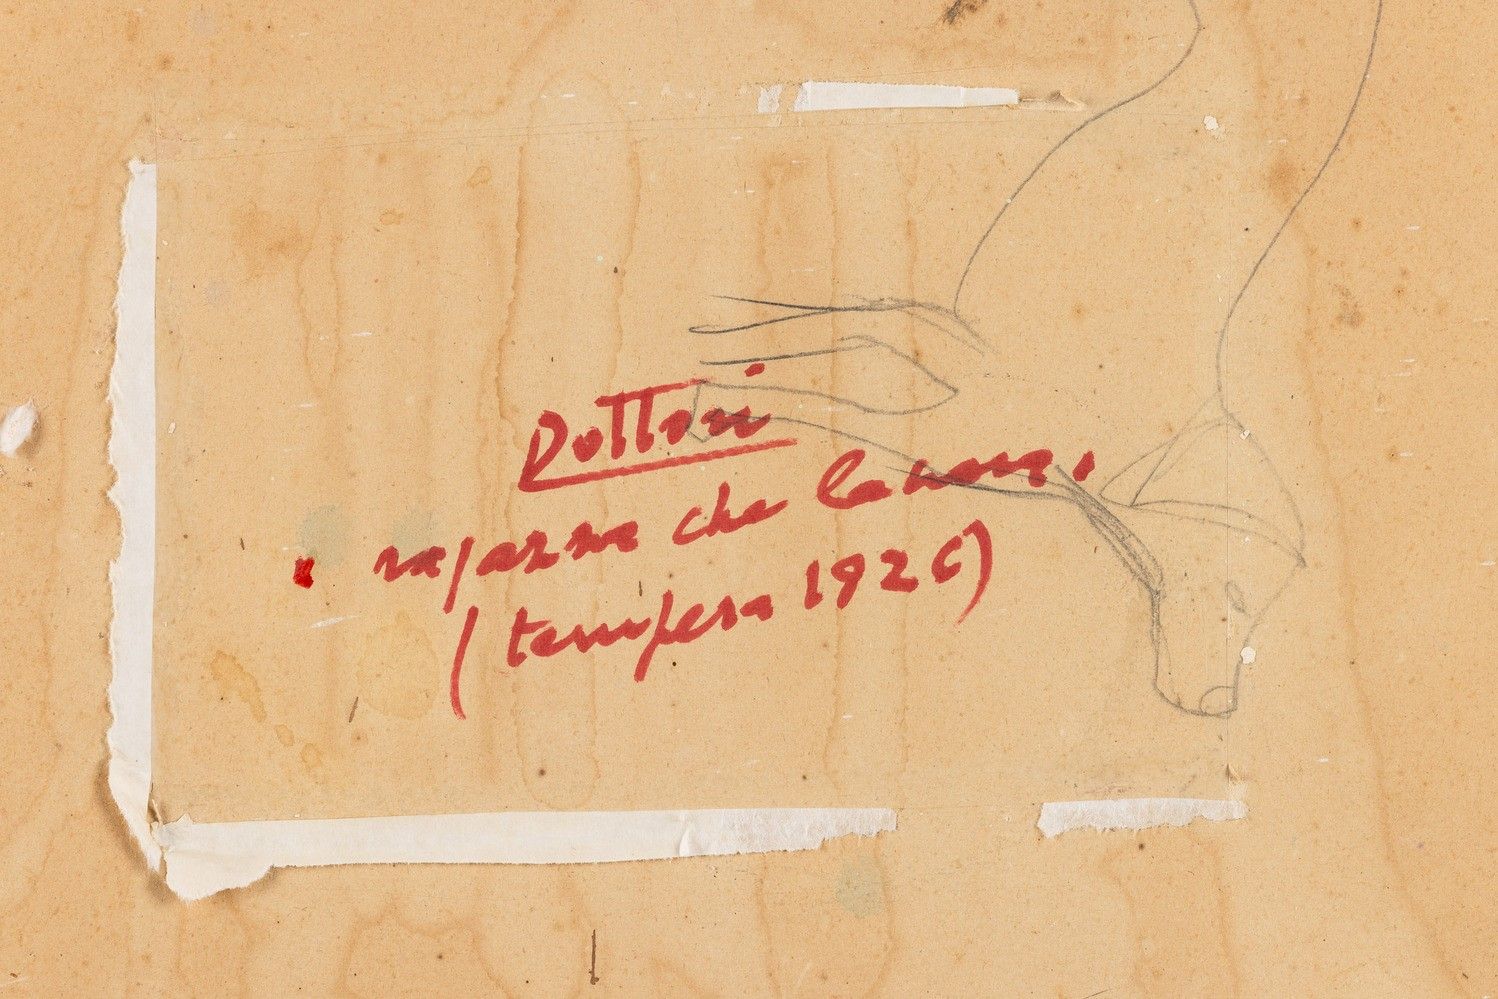 Dottori
ragazze che lavora.
(tempera 1926)